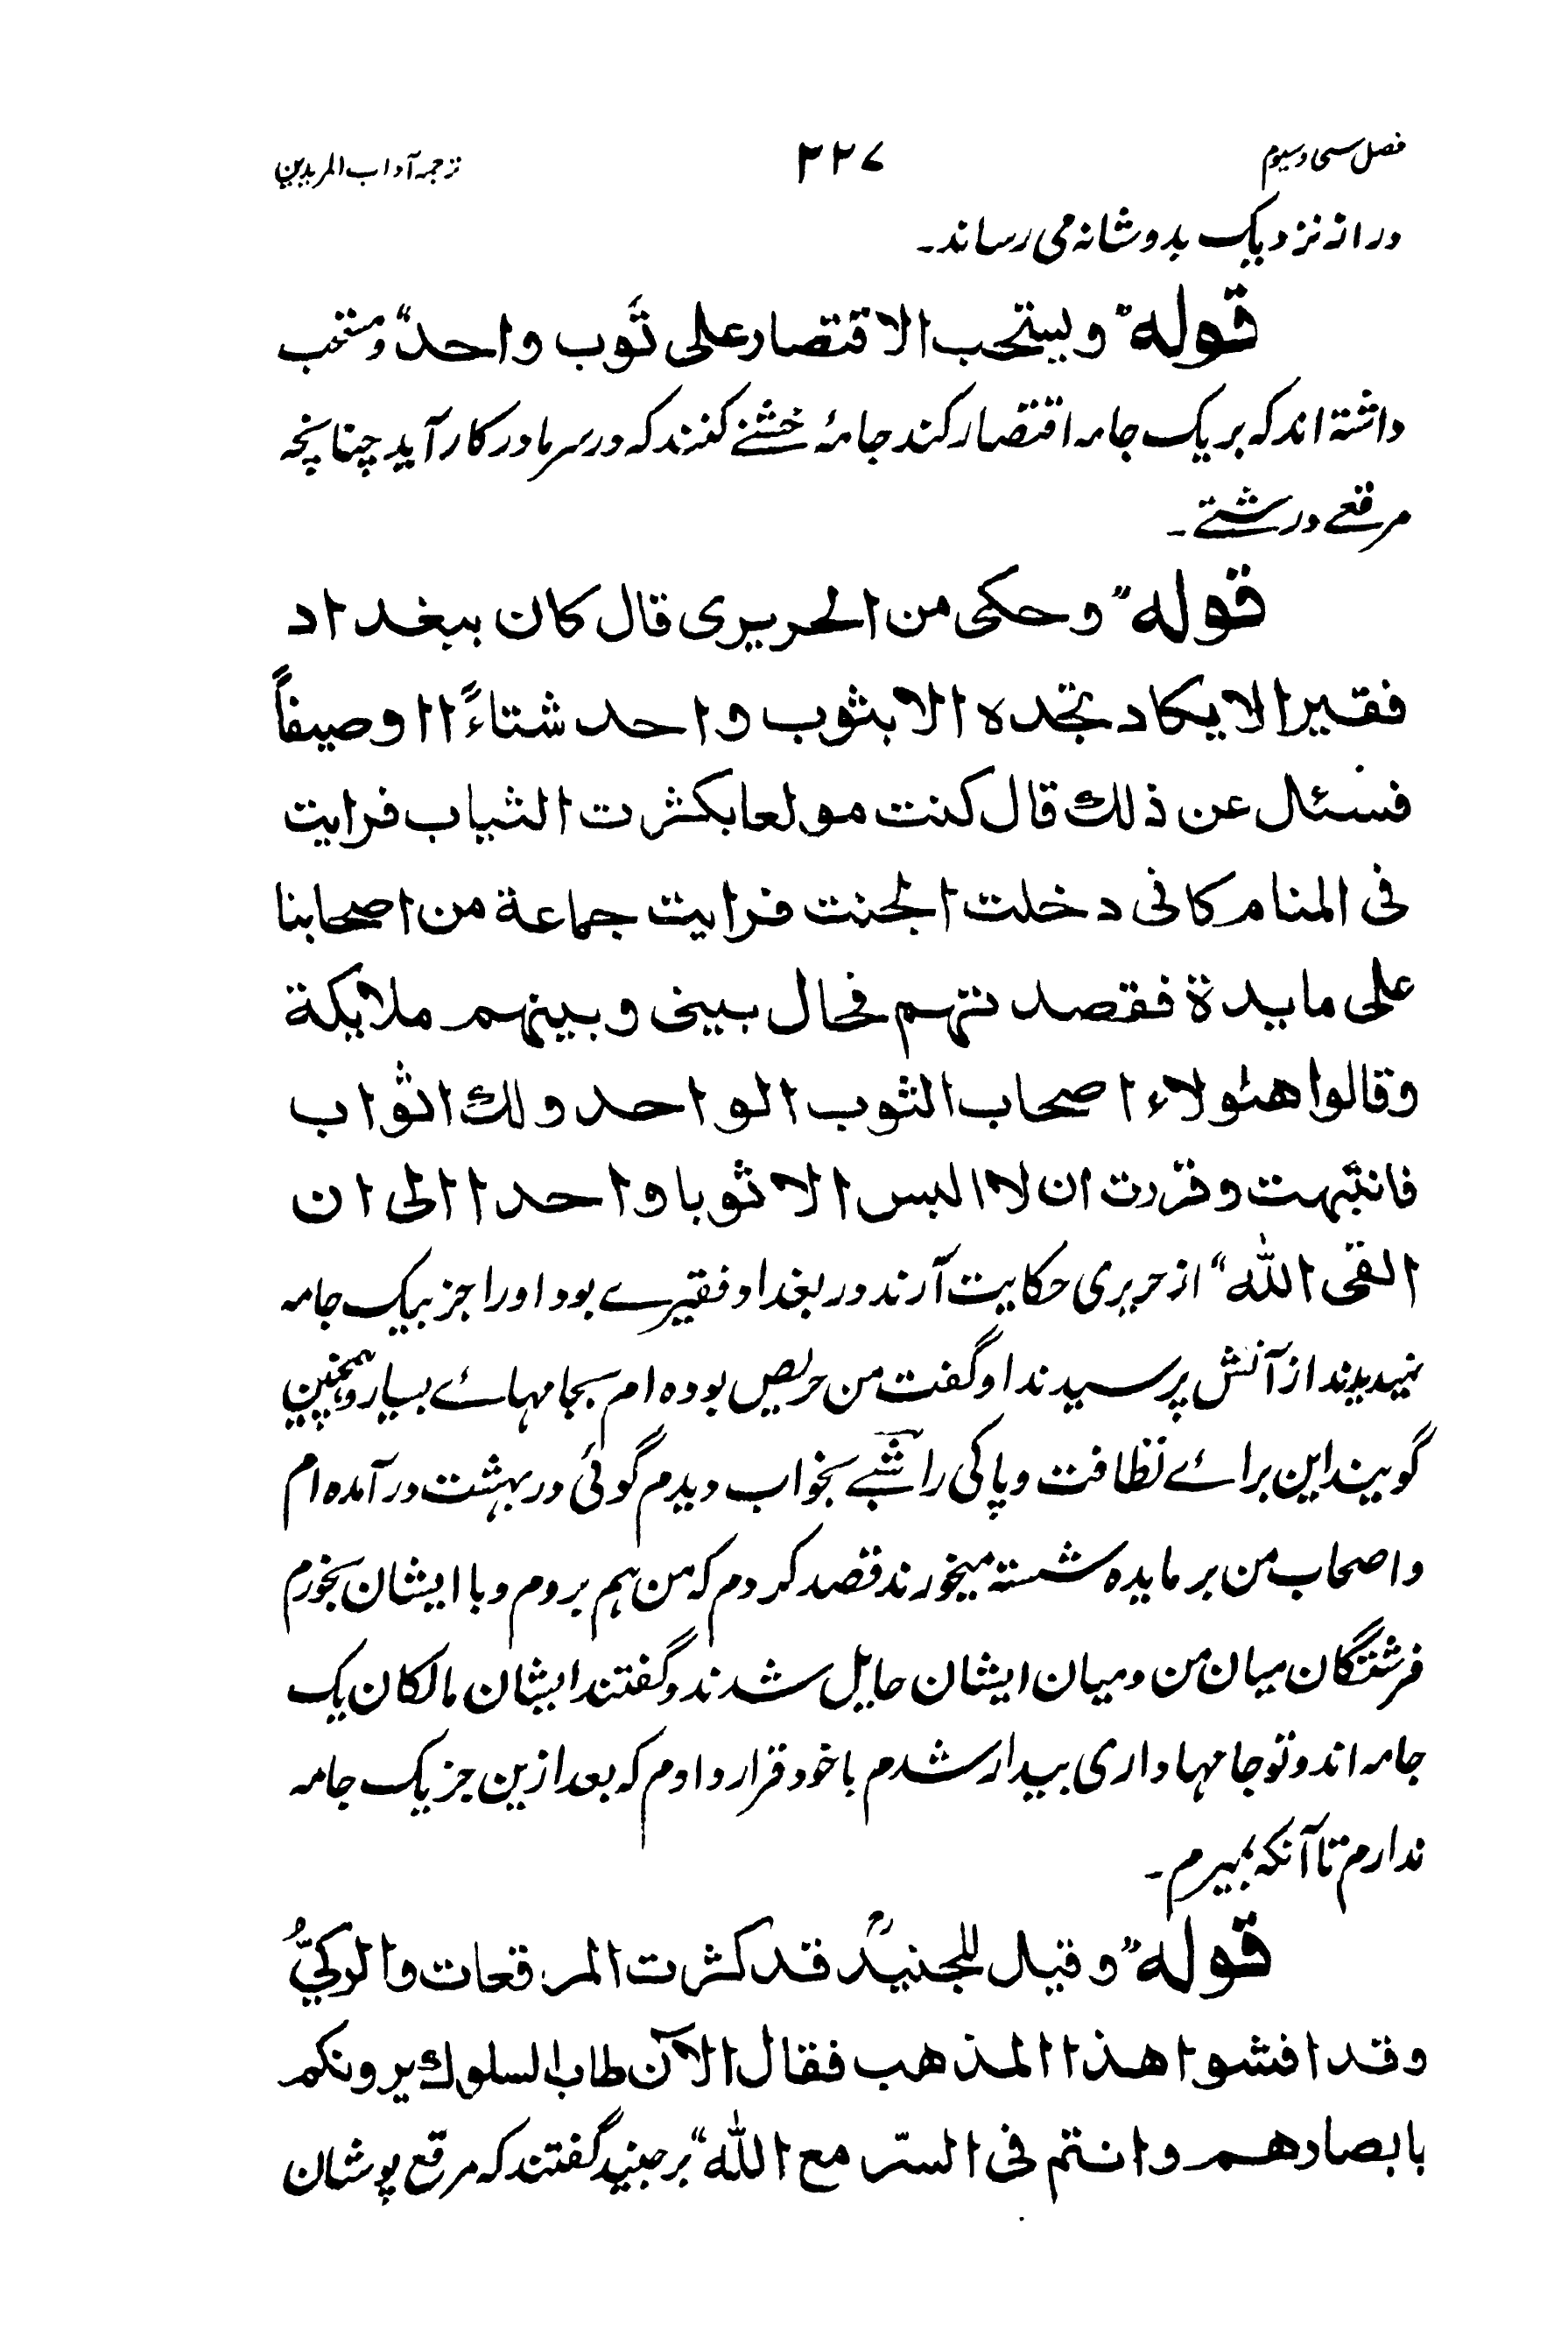 فصل سی و سیوم ۳۲۷ ترجمہ آداب المریدین
دراند نزدیک بدوشانہ می رساند۔
قوله ”ویستحب الاقتصار علی ثوب واحد“ ومستحب
داشتہ اند کہ بر یک جامہ اقتصار کند جامۂ خشنے کنند کہ در سرما در کار آید چنانچہ
مرقعے درشتے۔
قوله ”وحکی من الحریری قال کان ببغداد
فقیرا لا یکاد تجده الا بثوب واحد شتاءً ا وصیفاً
فسئل عن ذلك قال کنت مولعا بکثرت الثیاب فرایت
فی المنام کانی دخلت الجنت فرایت جماعة من اصحابنا
علی مایدة فقصدتهم فحال بینی وبینهم ملایکة
وقالوا هئولاء اصحاب الثوب الواحد ولك اثواب
فانتبهت وقررت ان لا البس الا ثوبا واحدا الی ان
القی الله“ از حریری حکایت آرند در بغداد فقیرے بود او را جز بیک جامہ
ندیدیند از آنش پرسیدند او گفت من حریص بودہ ام بجامہائے بسیار وہمچنین
گویند این برائے نظافت و پاکی را شبے بخواب دیدم گوئی در بہشت در آمدہ ام
و اصحاب من بر مایدہ نشستہ میخورند قصد کردم کہ من ہم بروم و با ایشان بخورم
فرشتگان میان من و میان ایشان حایل شدند و گفتند ایشان مالکان یک
جامہ اند و تو جامہا داری بیدار شدم با خود قرار دادم کہ بعد ازین جز یک جامہ
ندارم تا آنکہ بمیرم۔
قوله ”وقیل للجنیدؒ قد کثرت المرقعات والرکیُّ
وقد افشوا هذا المذهب فقال الآن طاب السلوك یرونکم
بابصارهم وانتم فی السّر مع الله“ بر جنید گفتند کہ مرقع پوشان